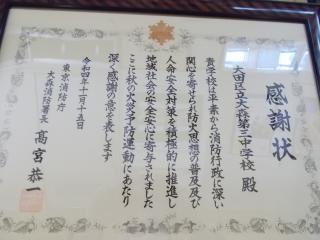 感謝状
大田区立大森第三中学校 殿
貴学校は平素から消防行政に深い
関心を寄せられ防火思想の普及及び
人命安全対策を積極的に推進し
地域社会の安全安心に寄与されました
ここに秋の火災予防運動にあたり
深く感謝の意を表します
令和四年十一月十五日
東京消防庁
大森消防署長 髙宮恭一